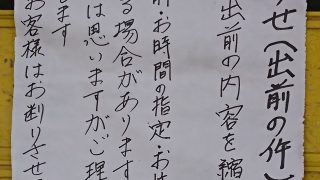 せ(出前の件)
出前の内容を縮
前・お時間の指定・お
る場合があります
は思いますがご理
ます
お客様はお断りさせ